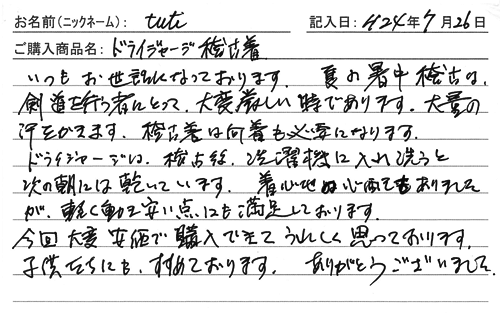 お名前(ニックネーム): tuti 記入日: H24年7月26日
ご購入商品名: ドライジャージ稽古着
いつもお世話になっております。 夏の暑中稽古は、
剣道を行う者にとって、大変厳しい時であります。大量の
汗をかきます。稽古着は何着も必要になります。
ドライジャージは、稽古後、洗濯機に入れ洗うと
次の朝には乾いています。 着心地は心配もありました
が、軽く動き安い点にも満足しております。
今回大変安価で購入できてうれしく思っております。
子供たちにも、すすめております。 ありがとうございました。